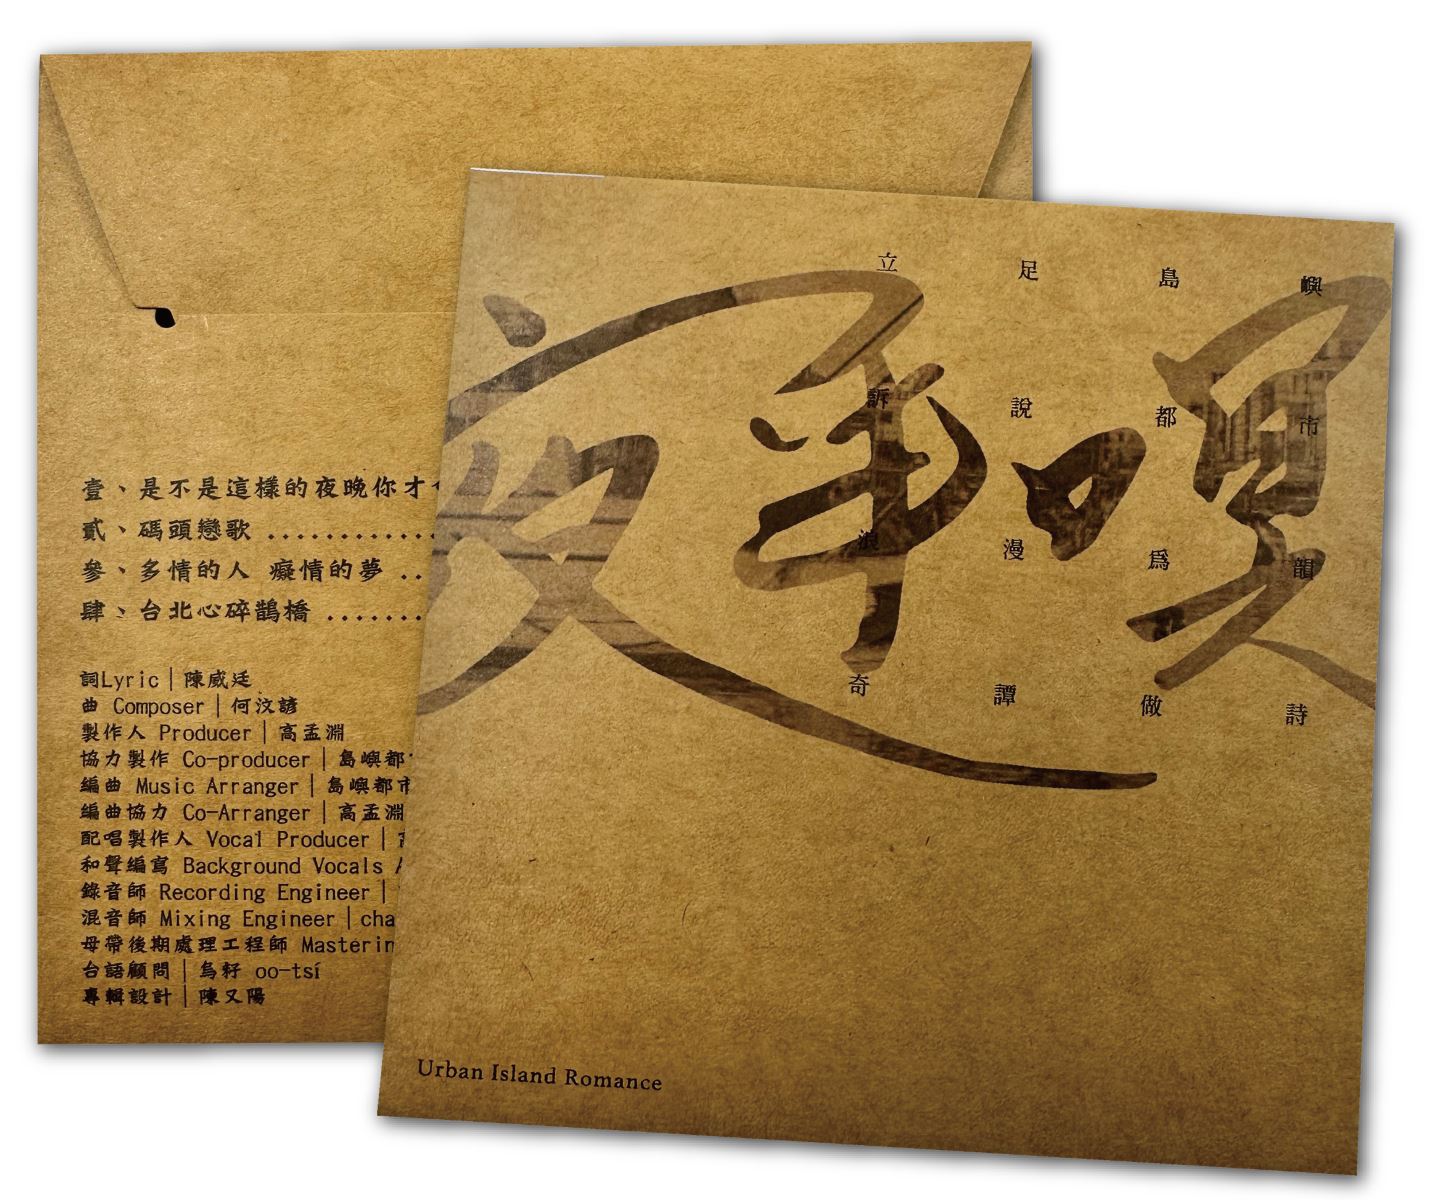 壹、是不是這樣的夜晚你才
貳、碼頭戀歌 ............
參、多情的人 癡情的夢 ..
肆、台北心碎鵲橋 .......
詞Lyric｜陳威廷
曲 Composer｜何汶諺
製作人 Producer｜高孟淵
協力製作 Co-producer｜島嶼都
編曲 Music Arranger｜島嶼都市
編曲協力 Co-Arranger｜高孟淵
配唱製作人 Vocal Producer｜
和聲編寫 Background Vocals
錄音師 Recording Engineer｜
混音師 Mixing Engineer｜cha
母帶後期處理工程師 Masterin
台語顧問｜烏籽 oo-tsí
專輯設計｜陳又陽
夜半唄
立足島嶼
訴說都市
浪漫爲韻
奇譚做詩
Urban Island Romance